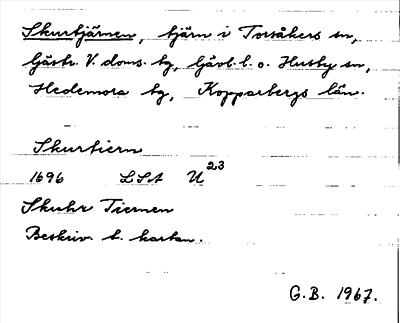 Skurtjärnen, tjärn i Torsåkers sn,
Gästr. V. doms. tg, Gävl. l. o. Husby sn,
Hedemora tg, Kopparbergs län.
Skurtiern
1696 LSA U 23
Skuhr Tiernen
Beskriv. t. kartan.
G.B. 1967.